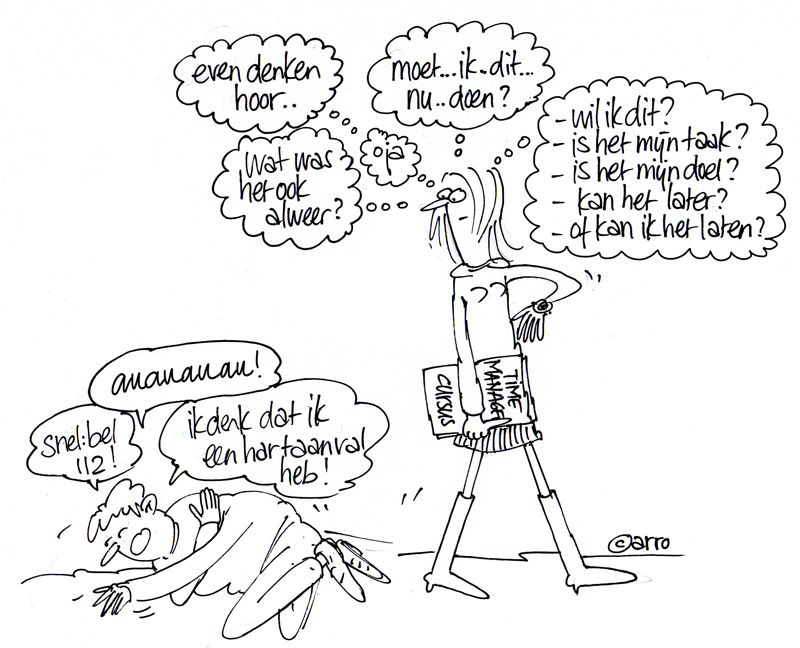 even denken
hoor..
moet...ik..dit...
nu..doen?
oja
wat was
het ook
alweer?
- wil ik dit?
- is het mijn taak?
- is het mijn doel?
- kan het later?
- of kan ik het laten?
CURSUS
TIME
MANAGE
auauauau!
snel:bel
112!
ik denk dat ik
een hartaanval
heb!
©arro